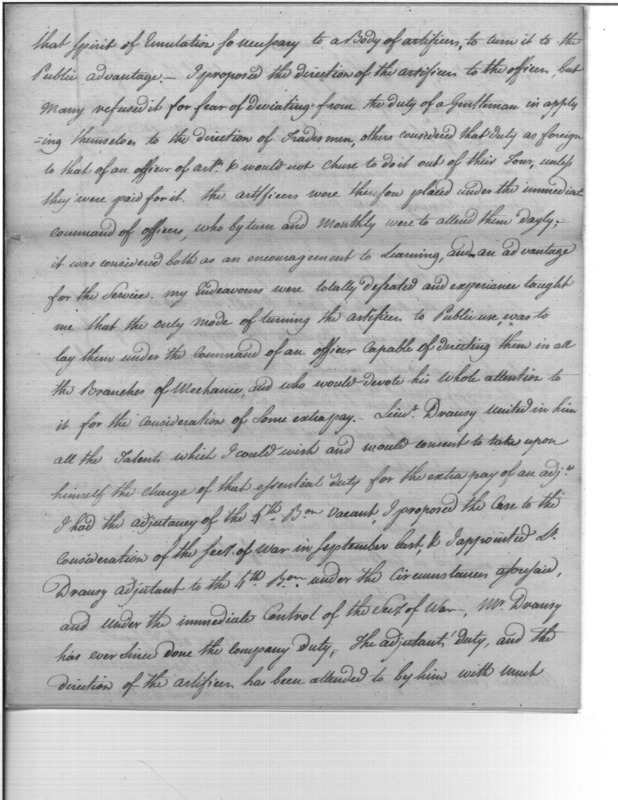 that Spirit of Emulation so necessary to a Body of artificers, to turn it to the
Public advantage. — I proposed the direction of the artificers to the officers, but
Many refused it for fear of deviating from the duty of a Gentleman in apply
=ing themselves to the direction of Tradesmen, others considered that duty as foreign
to that of an officer of arty. & would not chuse to do it out of their Tour, unless
they were paid for it. the artificers were therefore placed under the immediate
Command of officers, who by turn and Monthly were to attend them dayly; —
it was considered both as an encouragement to Learning, and an advantage
for the Service. my Endeavours were totally defeated and experience taught
me that the only mode of turning the artificers to Public use, was to
lay them under the Command of an officer Capable of directing them in all
the Branches of Mechanics, and who would devote his whole attention to
it for the Consideration of Some extra pay. — Lieut. Dransy united in him
all the Talents which I could wish and would consent to take upon
himself the Charge of that essential duty for the extra pay of an adjt.
I had the adjutancy of the 4th. Bon. vacant, I proposed the Case to the
Consideration of the Secy. of War in September last, & I appointed Lt.
Dransy adjutant to the 4th. Bon. under the Circumstances aforesaid,
and under the immediate Control of the Secy. of War —, Mr. Dransy
has ever Since done the Company duty, The adjutants' duty, and the
direction of the artificers has been attended to by him with much